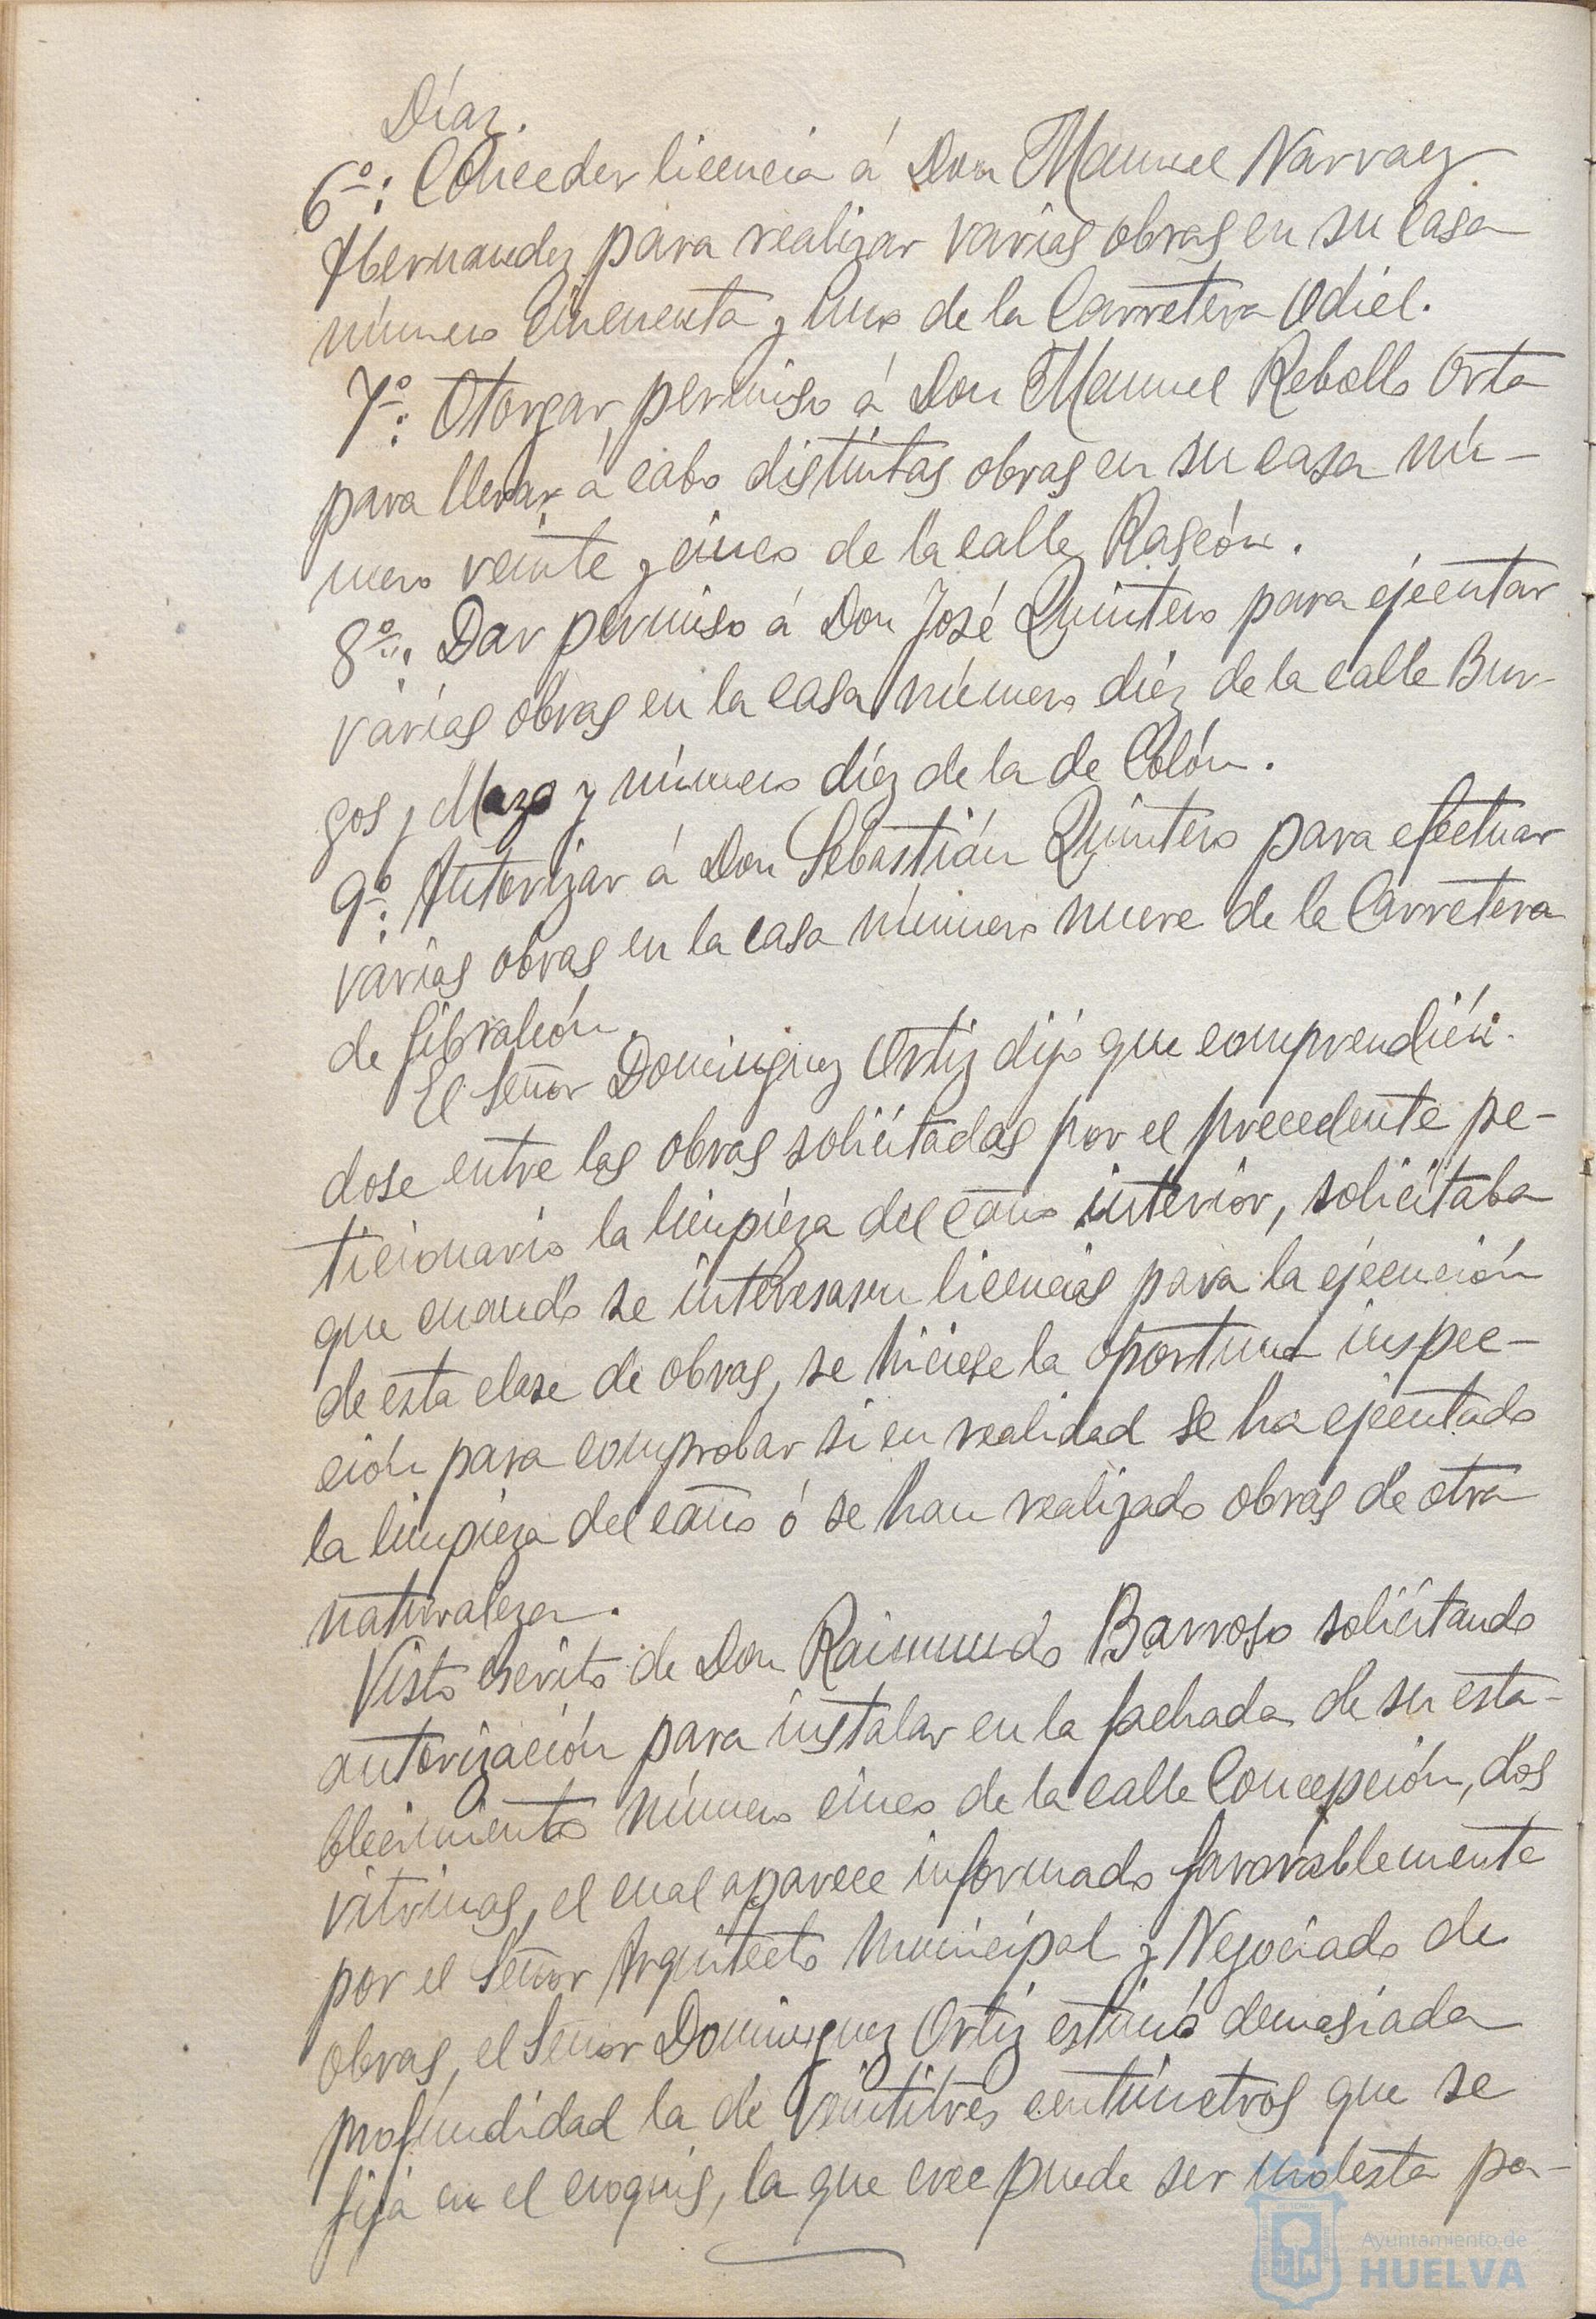 Díaz.
6º: Conceder licencia á Don Manuel Narvaez
Hernandez para realizar varias obras en su casa
número cincuenta y uno de la Carretera Odiel.
7º: Otorgar permiso á Don Manuel Rebollo Orta
para llevar á cabo distintas obras en su casa nú-
mero veinte y cinco de la calle Rascón.
8º: Dar permiso á Don José Quintero para ejecutar
varias obras en la casa número diéz de la calle Bur-
gos y Mazo y número diéz de la de Colón.
9º: Autorizar á Don Sebastián Quintero para efectuar
varias obras en la casa número nueve de la Carretera
de Gibraleón.
El Señor Dominguez Ortiz dijo que comprendién-
dose entre las obras solicitadas por el precedente pe-
ticionario la limpieza del caño interior, solicitaba
que cuando se interesasen licencias para la ejecución
de esta clase de obras, se hiciese la oportuna inspec-
ción para comprobar si en realidad se ha ejecutado
la limpieza del caño ó se han realizado obras de otra
naturaleza.
Visto escrito de Don Raimundo Barroso solicitando
autorización para instalar en la fachada de su esta-
blecimiento número cinco de la calle Concepción, dos
vitrinas, el cual aparece informado favorablemente
por el Señor Arquitecto Municipal y Negociado de
obras, el Señor Dominguez Ortiz estimó demasiada
profundidad la de veintitres centímetros que se
fija en el croquis, la que cree puede ser molesta pa-
Ayuntamiento de
HUELVA